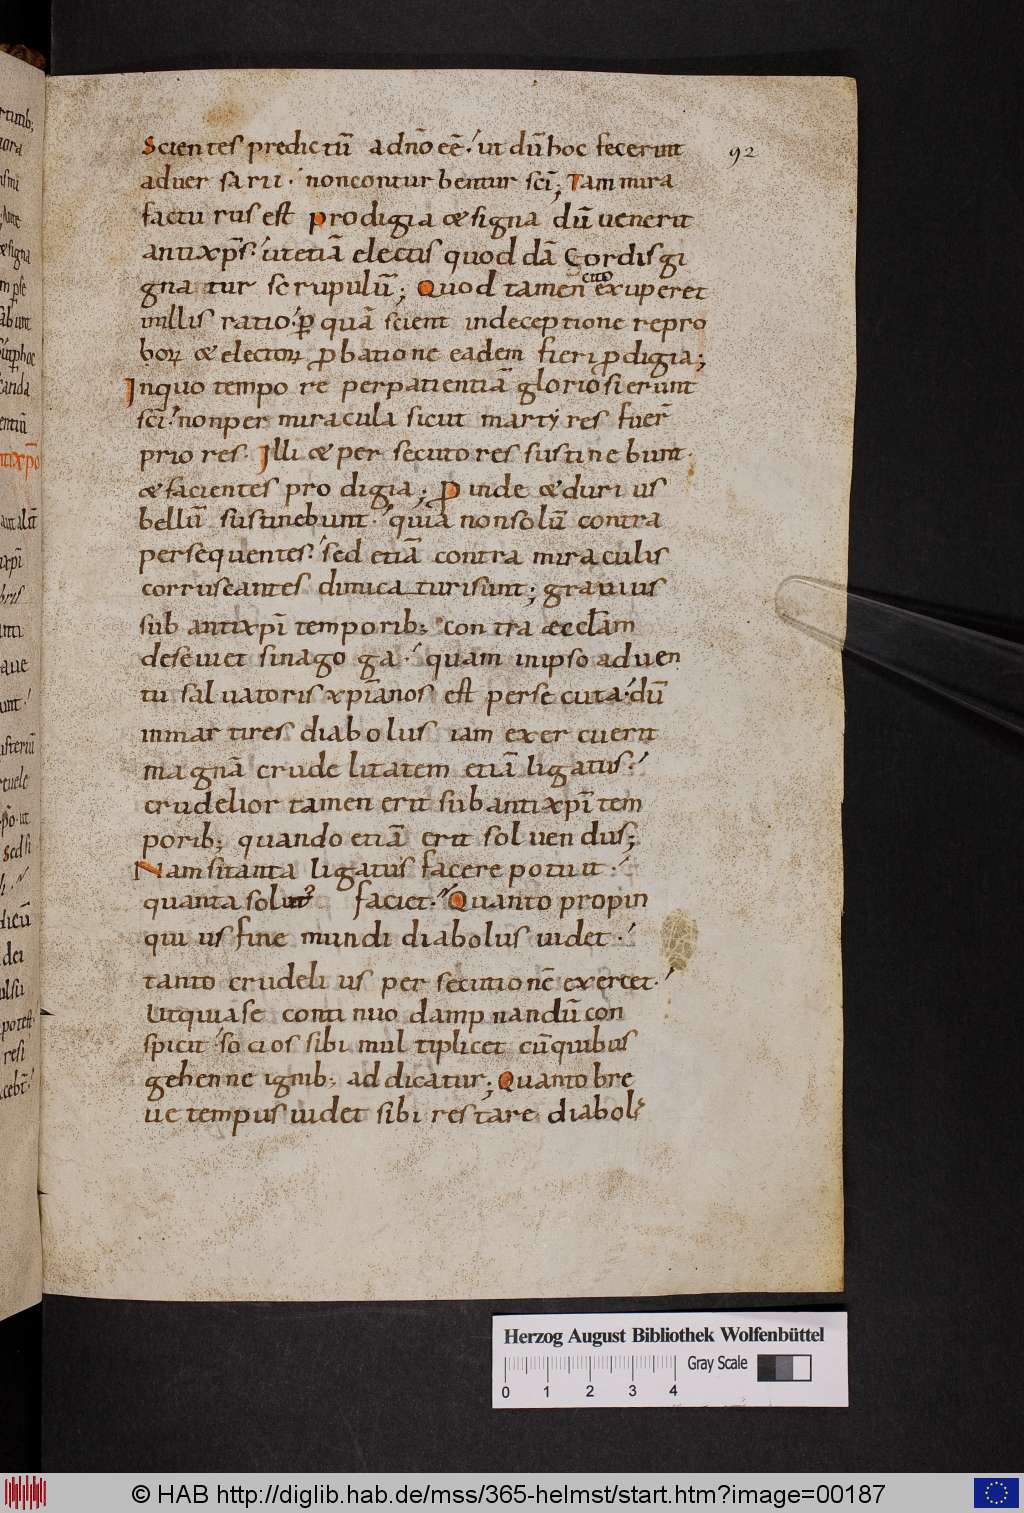 92
Scientes predictū adn̄o eē ut dū hoc fecerint
aduersarii non conturbentur sc̄i; Tam mira
facturus est prodigia & signa dū uenerit
antixp̄s ut etiā electis quod dā cordis gi
gnatur scrupulū; Quod tamen cito exuperet
in illis ratio ꝑ quā scient in deceptione repro
boꝝ & electoꝝ ꝓbatione eadem fieri ꝓdigia;
In quo tempore per patientiā gloriosi erunt
sc̄i non per miracula sicut martyres fuer̄
priores. Illi & persecutores sustinebunt
& facientes prodigia; ꝓinde & duriús
bellū sustinebunt quia non solū contra
persequentes sed etiā contra miraculis
corruscantes dimicaturi sunt; grauius
sub antixp̄i temporib; contra æccl̄am
deseuiet sinagoga quam in ipso aduen
tu saluatoris xp̄ianos est persecuta dū
in martires diabolus iam exercuerit
magnā crudelitatem etiā ligatus
crudelior tamen erit sub antixp̄i tem
porib; quando etiā erit soluendus;
Nam si tanta ligatus facere potuit
quanta solutꝰ faciet. Quanto propin
quius fine mundi diabolus uidet
tanto crudelius persecutionē exercet
Ut quia se continuo dampnandū con
spicit socios sibi multiplicet cū quibus
gehenne ignib; addicatur; Quanto bre
ue tempus uidet sibi restare diabolꝰ
Herzog August Bibliothek Wolfenbüttel
Gray Scale
0 1 2 3 4
© HAB http://diglib.hab.de/mss/365-helmst/start.htm?image=00187